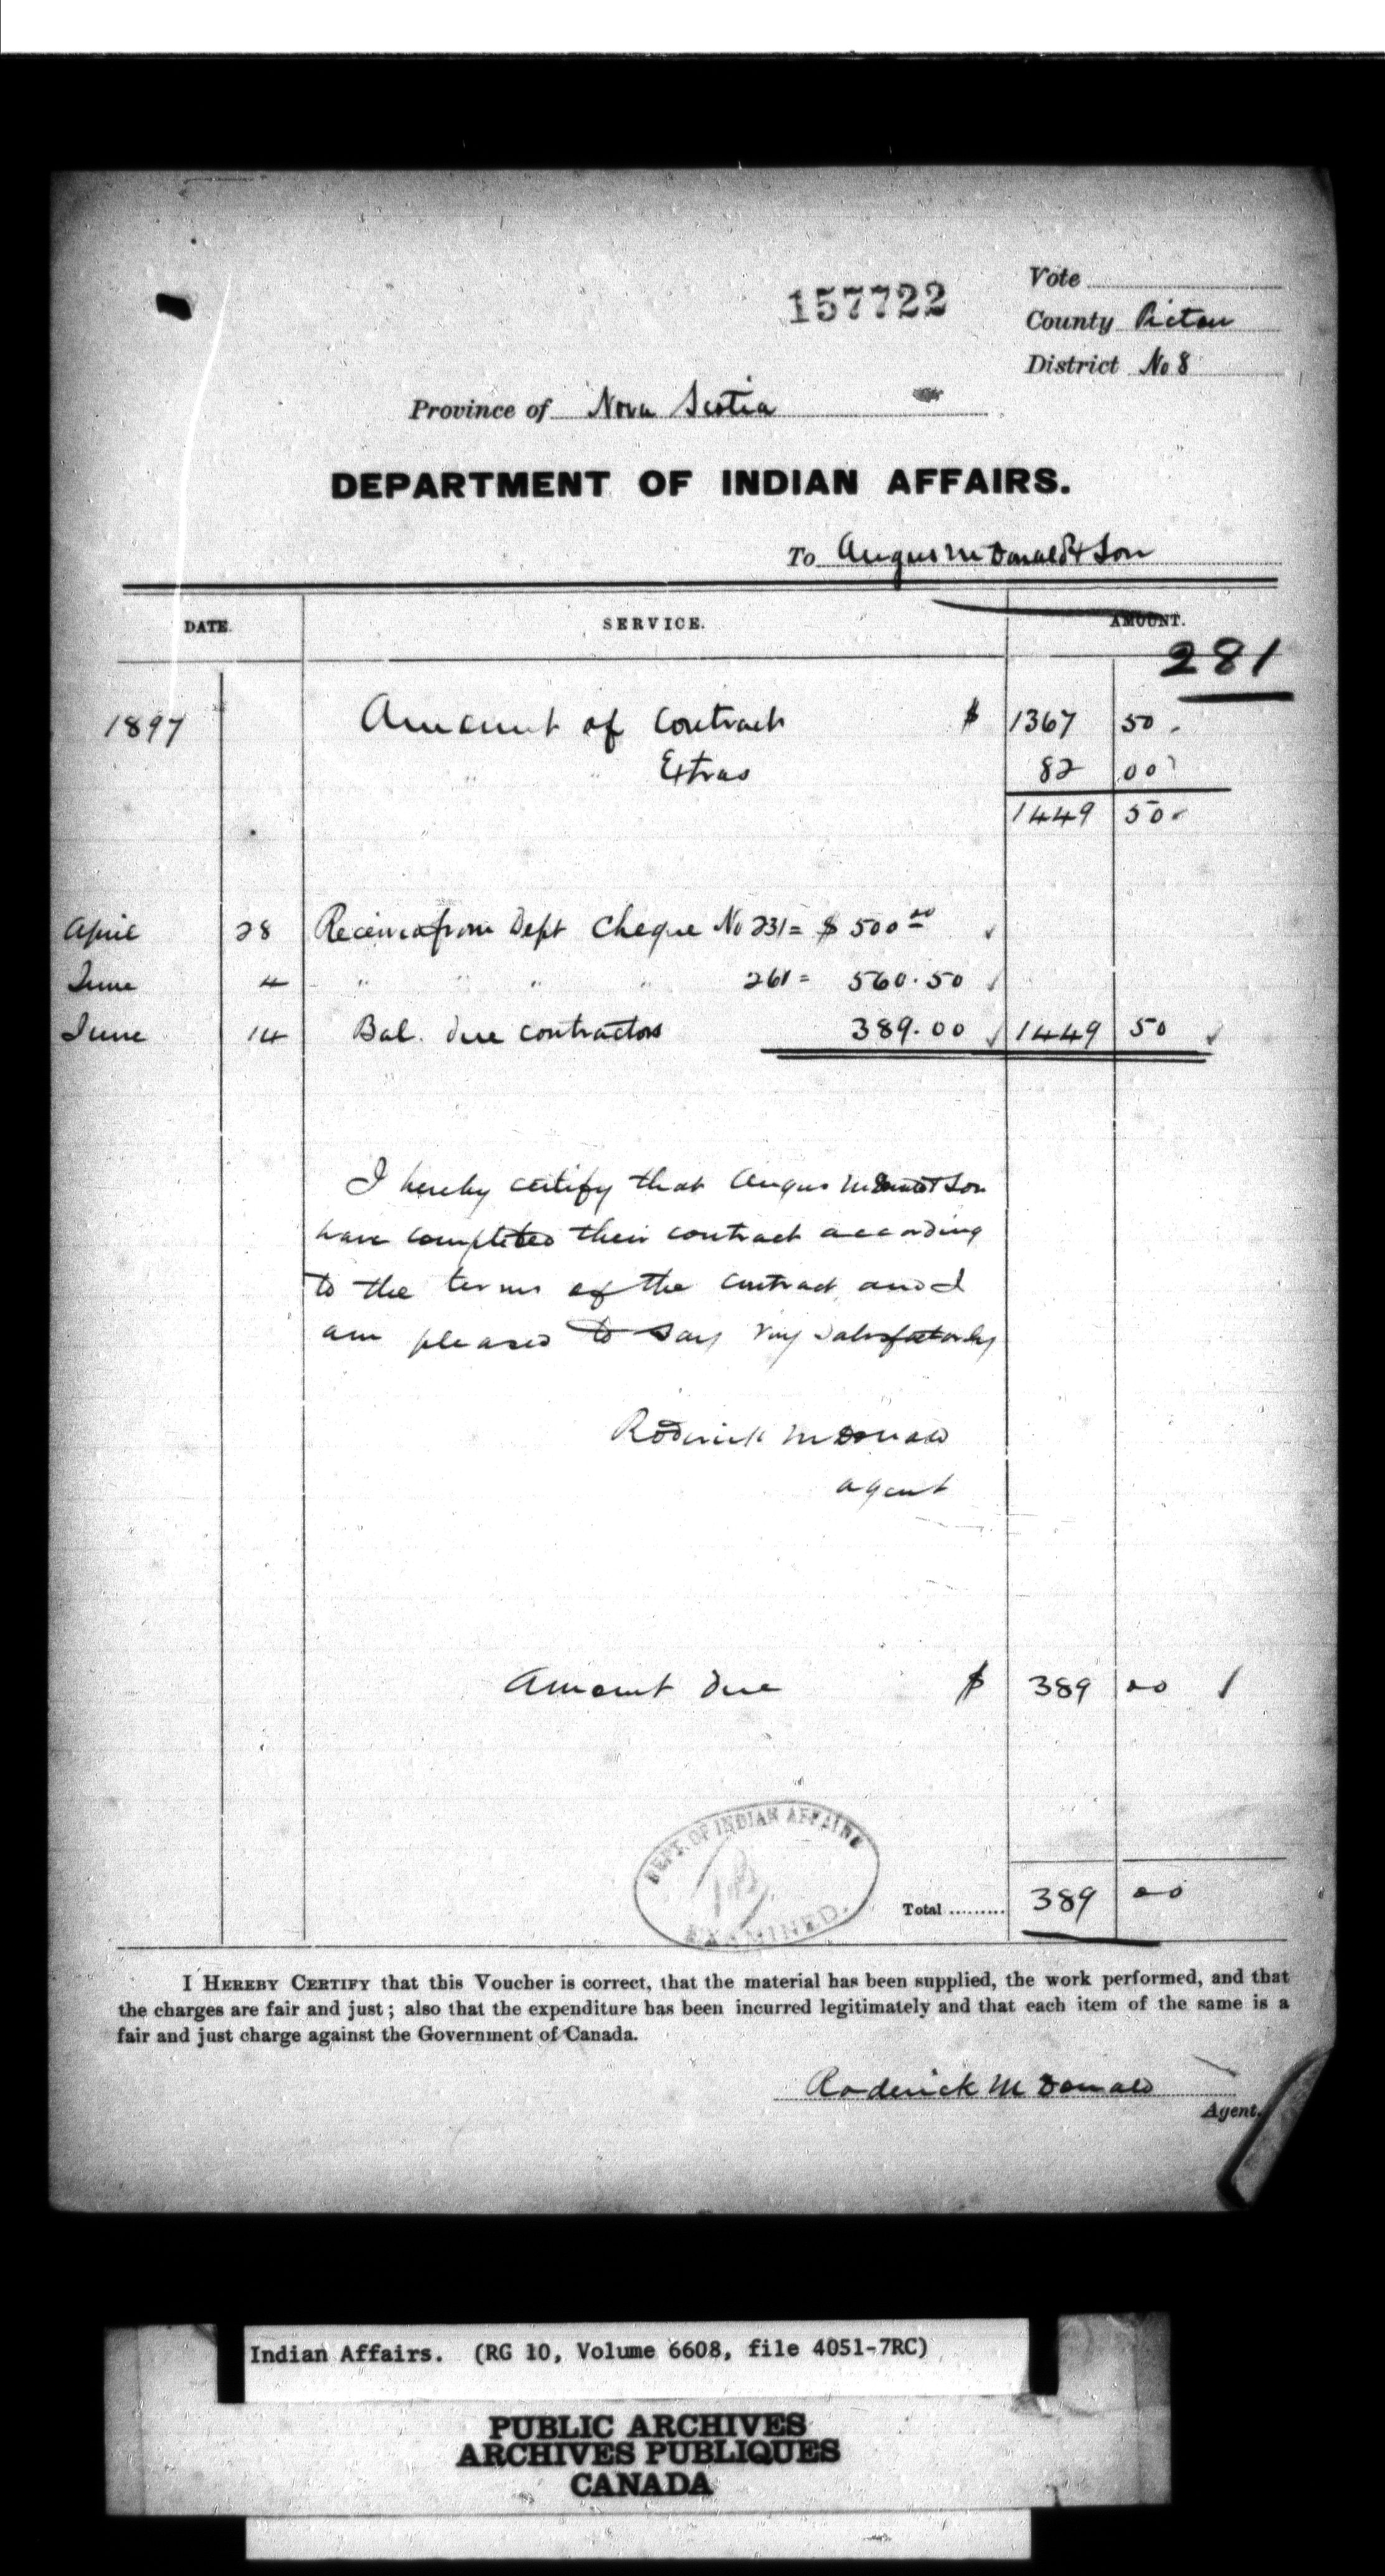 157722
Vote
County Pictou
District No 8
Province of Nova Scotia
DEPARTMENT OF INDIAN AFFAIRS.
To Angus McDonald & Son
DATE. SERVICE. AMOUNT.
281
1897 Amount of Contract $ 1367 50
" " Extras 82 00
1449 50
April 28 Received from Dept Cheque No 231 = $ 500 00
June 4 " " " 261 = 560.50
June 14 Bal. due contractors 389.00 1449 50
I hereby certify that Angus McDonald & Son
have completed their contract according
to the terms of the contract and I
am pleased to say very satisfactorly
Roderick McDonald
agent
Amount due $ 389 00
DEPT. OF INDIAN AFFAIRS
EXAMINED.
Total ......... 389 00
I HEREBY CERTIFY that this Voucher is correct, that the material has been supplied, the work performed, and that
the charges are fair and just; also that the expenditure has been incurred legitimately and that each item of the same is a
fair and just charge against the Government of Canada.
Roderick McDonald
Agent.
Indian Affairs. (RG 10, Volume 6608, file 4051-7RC)
PUBLIC ARCHIVES
ARCHIVES PUBLIQUES
CANADA